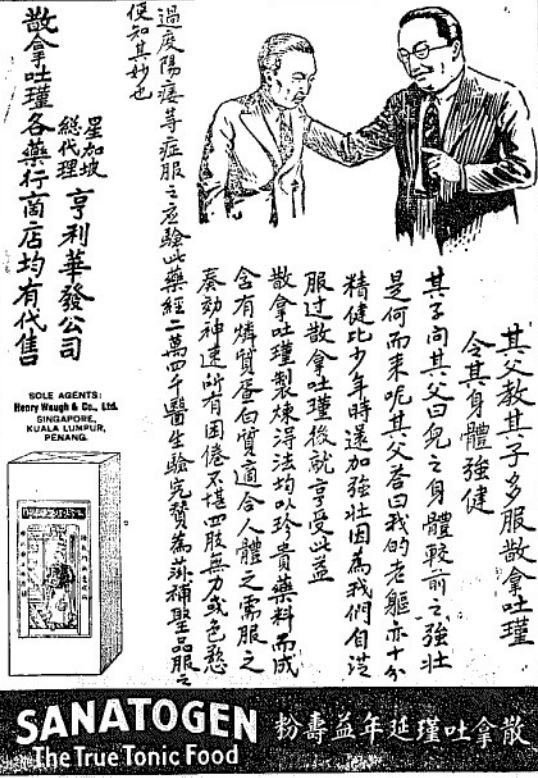 其父教其子多服散拿吐瑾
令其身體強健
其子问其父曰兒之身體較前之強壯
是何而来呢其父荅曰我的老軀亦十分
精健比少年時還加強壮因為我們自從
服过散拿吐瑾後就享受此益
散拿吐瑾製煉得法均以珍貴藥料而成
含有燐質蛋白質適合人體之需服之
奏効神速所有困倦不堪四肢無力或色慾
過度陽痿等症服之应驗此藥經二萬四千醫生驗究贊為滋補聖品服之
便知其妙也
星加坡
總代理
亨利華發公司
散拿吐瑾各藥行商店均有代售
SOLE AGENTS:
Henry Waugh & Co., Ltd.
SINGAPORE,
KUALA LUMPUR,
PENANG.
SANATOGEN
The True Tonic Food
散拿吐瑾延年益壽粉